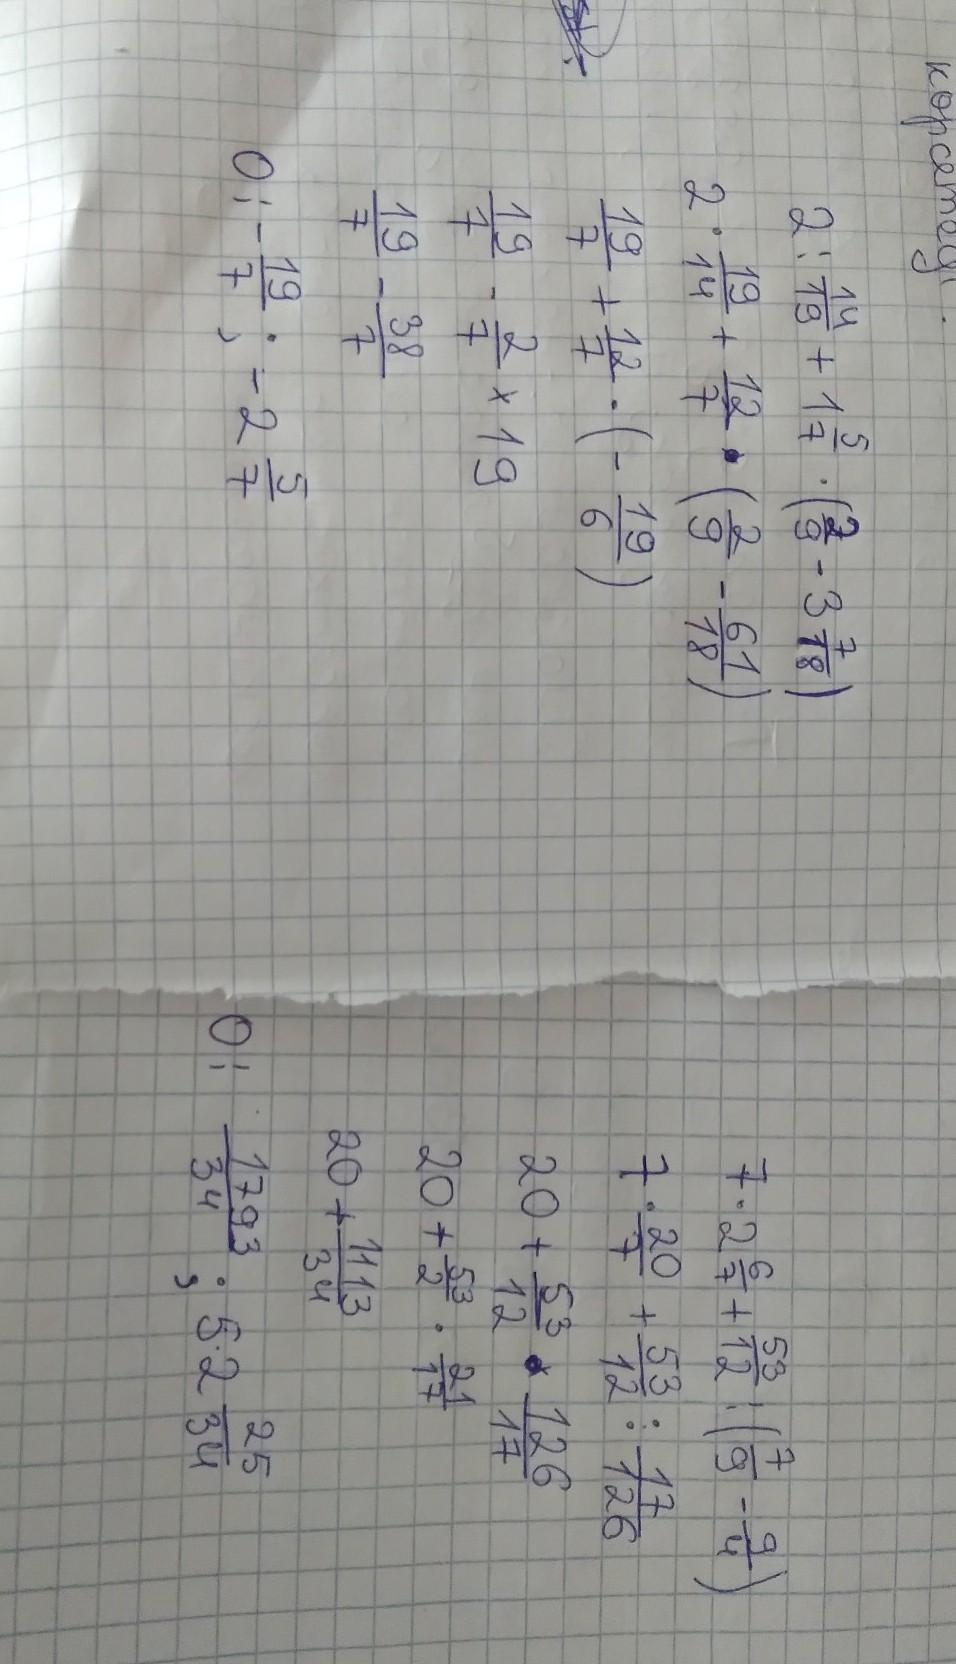 көрсетеді.
2 : 14/19 + 1 5/7 · (2/9 - 3 7/18)
2 · 19/14 + 12/7 · (2/9 - 61/18)
19/7 + 12/7 · (- 19/6)
19/7 - 2/7 × 19
19/7 - 38/7
О: - 19/7 ; - 2 5/7
7 · 2 6/7 + 53/12 : (7/9 - 9/4)
7 · 20/7 + 53/12 : 17/126
20 + 53/12 · 126/17
20 + 53/2 · 21/17
20 + 1113/34
О: 1793/34 ; 52 25/34